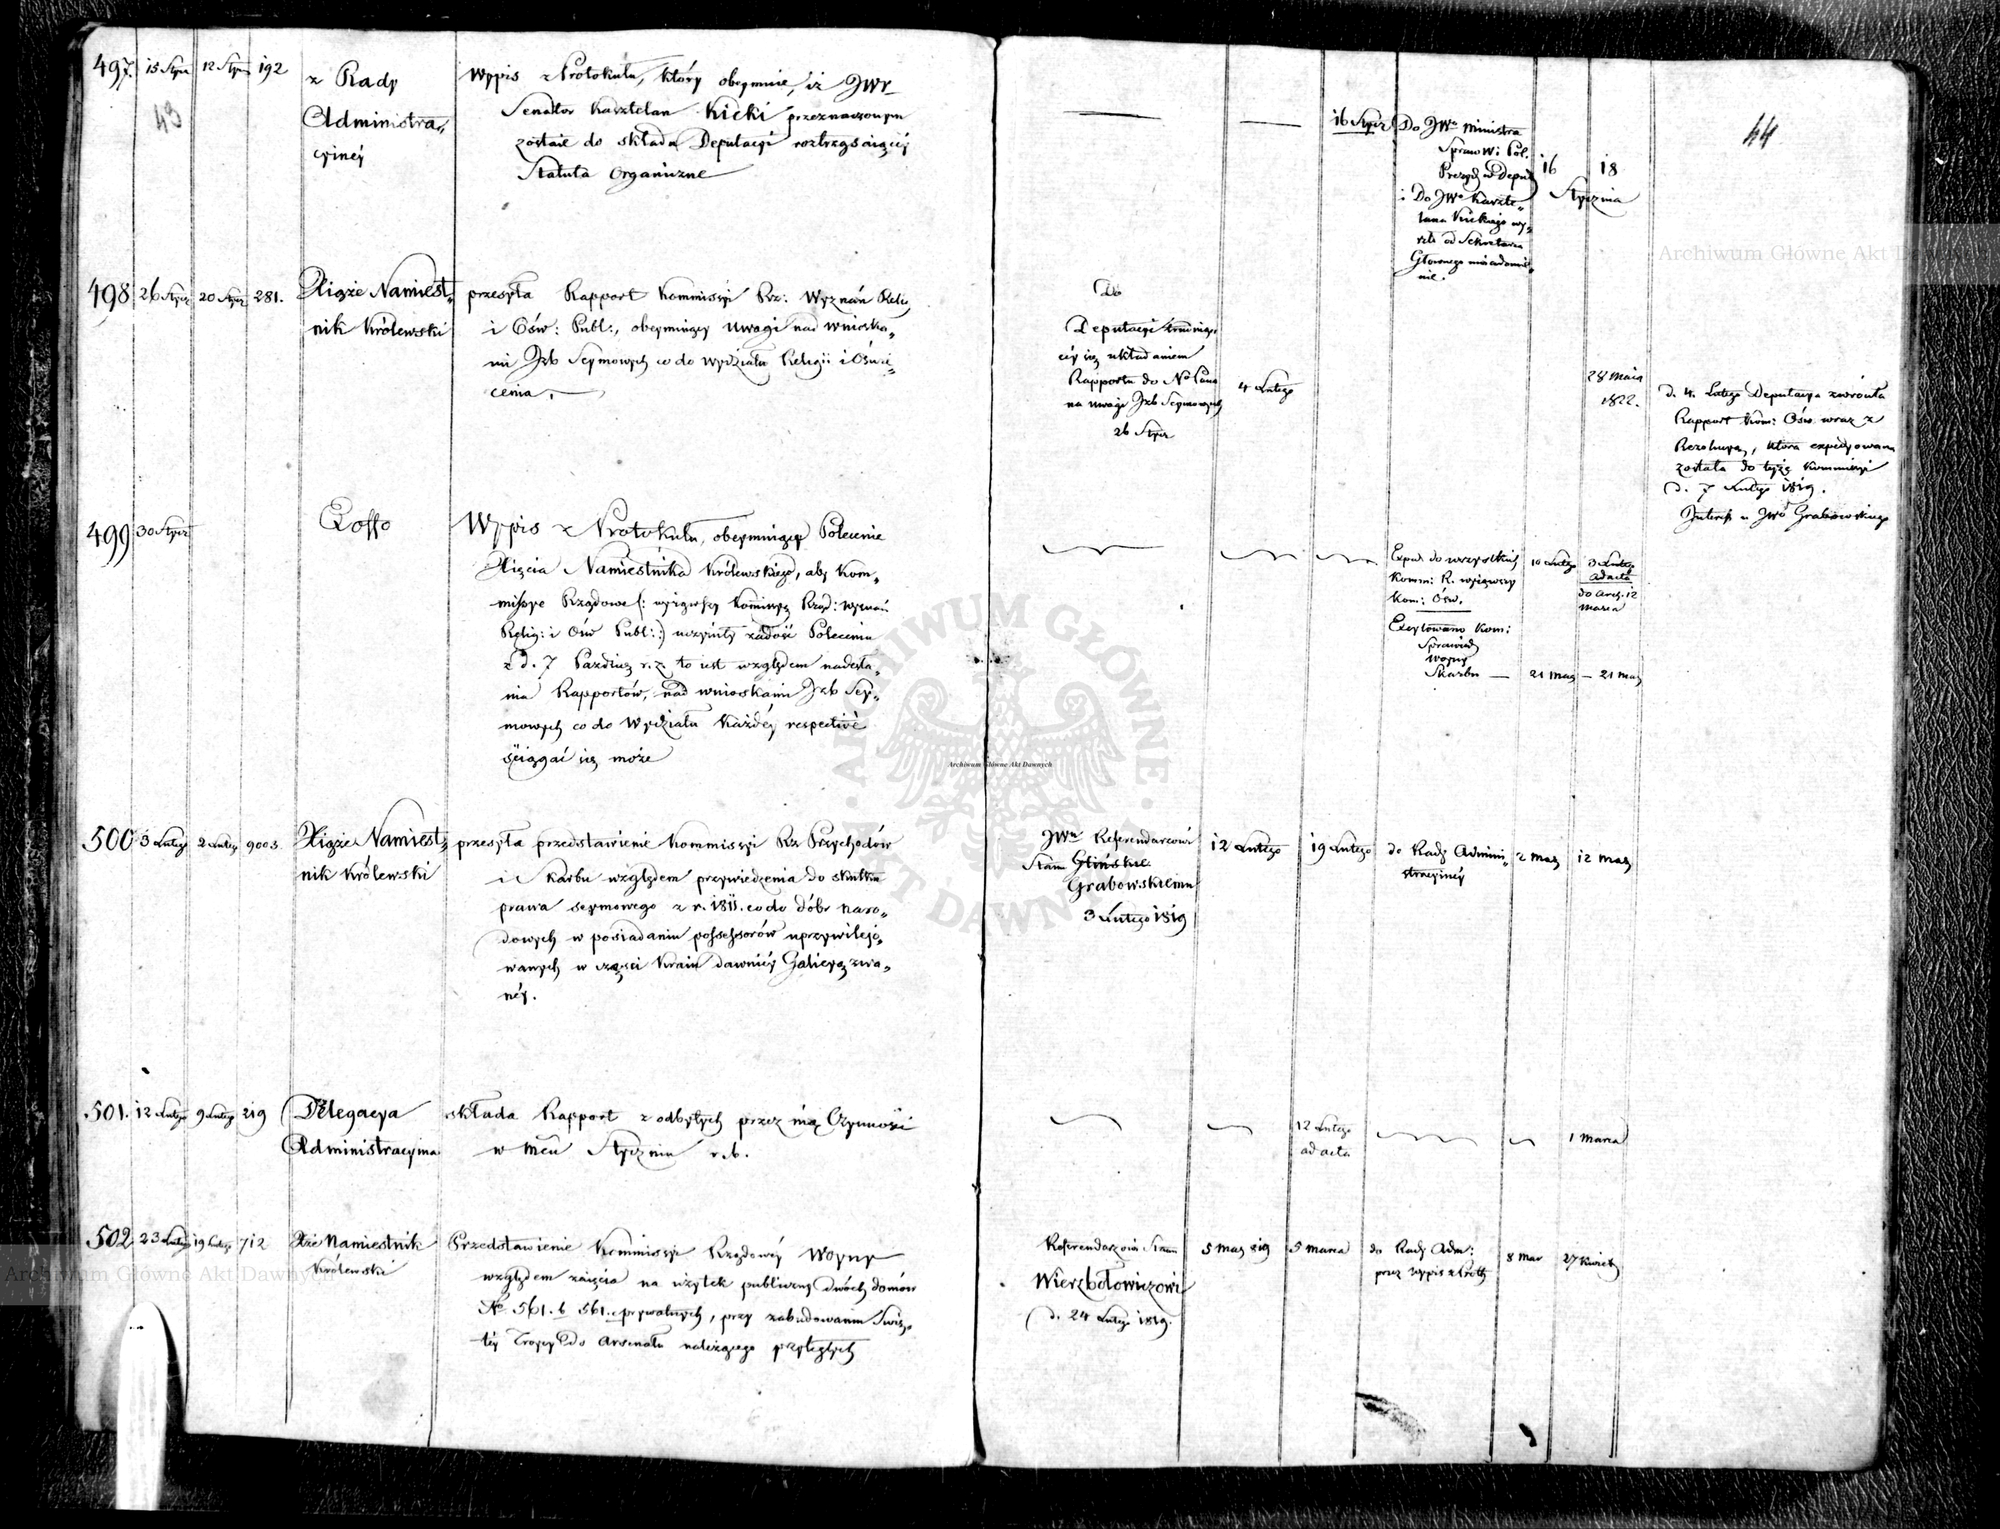 497. 15 Stycz 12 Stycz 192
43
z Rady
Administra-
cyiney
Wypis z Protokułu, który obeymuie, iż JWy
Senator Kasztelan Kicki przeznaczonym
zostaie do składu Deputacyi roztrząsaiącey
Statuta Organiczne
16 Stycz
Do JWo Ministra
Spraw W: Pol.
Prezyd w Deput
i Do JWo Kaszte-
lana Kickiego wy-
szło od Sekretarza
Głownego uwiadomie-
nie.
16 18
Stycznia
44
498 26 Stycz 20 Stycz 281.
Xiąże Namiest-
nik Królewski
przesyła Rapport Kommissyi Rz: Wyznań Relig
i Ośw: Publ:, obeymuiący uwagi nad wnioska-
mi Izb Seymowych co do wydziału Religii i Oświe-
cenia.
Do
Deputacyi trudniąc
cey się układaniem
Rapportu do No Pana
na uwagi Izb Seymowych
26 Stycz
4 Lutego
28 Maia
1822.
d. 4. Lutego Deputacya zwróciła
Rapport Kom: Ośw. wraz z
Rezolucyą, która expedyowana
została do teyże Kommissyi
d. 7 Lutego 1819.
u JWo Grabowskiego
499 30 Stycz
Wypis z Protokułu, obeymuiący Polecenie
Xięcia Namiestnika Królewskiego, aby Kom-
missye Rządowe (: wyiąwszy Kommissyą Rząd: Wyznań
Relig: i Ośw Publ: :) uczyniły zadość Poleceniu
z d. 7 Pazdier r. z. to iest względem nadesła-
nia Rapportów, nad wnioskami Izb Sey-
mowych co do Wydziału każdey respective
ściągać się może
Exped do wszystkich
Komm: R. wyiąwszy
Kom: Ośw.
10 Lutego
3 Lutego
ad acta
do Arch. 12
Marca
Excytowano Kom:
Sprawied
Woyny
Skarbu — 21 Maia — 21 Maia
500 3 Lutego 2 Lutego 9003.
Xiąże Namiest-
nik Królewski
przesyła przedstawienie Kommissyi Rz Przychodów
i Skarbu względem przywiedzenia do skutku
prawa seymowego z r. 1811. co do dóbr naro-
dowych w posiadaniu possessorów uprzywilejo-
wanych w części Kraiu dawniey Galicyą zwa-
ney.
JWu Referendarzowi
Stanu Glińskie
Grabowskiemu
3 Lutego 1819
12 Lutego
19 Lutego
do Rady Admini-
stracyiney
2 Maia 12 Maia
501. 12 Lutego 9 Lutego 219
Delegacya
Administracyina
składa Rapport z odbytych przez nią Czynności
w Mcu Styczniu r. b.
12 Lutego
ad acta
1 Marca
502 23 Lutego 19 Lutego 712
Xże Namiestnik
Królewski
Przedstawienie Kommissyi Rządowey Woyny
względem zaięcia na użytek publiczny dwóch domów
No 561. b 561. c prywatnych, przy zabudowaniu Świę-
tey Troycy do Arsenału należącego przyległych
Referendarzowi Stanu
Wierzbołowiczowi
d. 24 Lutego 1819.
5 Mar 819
5 Marca
do Rady Adm:
przez wypis z Protk
8 Mar 27 Kwiet
Archiwum Główne Akt Dawnych
Archiwum Główne Akt Dawnych
Archiwum Główne Akt Dawnych
ARCHIWUM GŁÓWNE AKT DAWNYCH